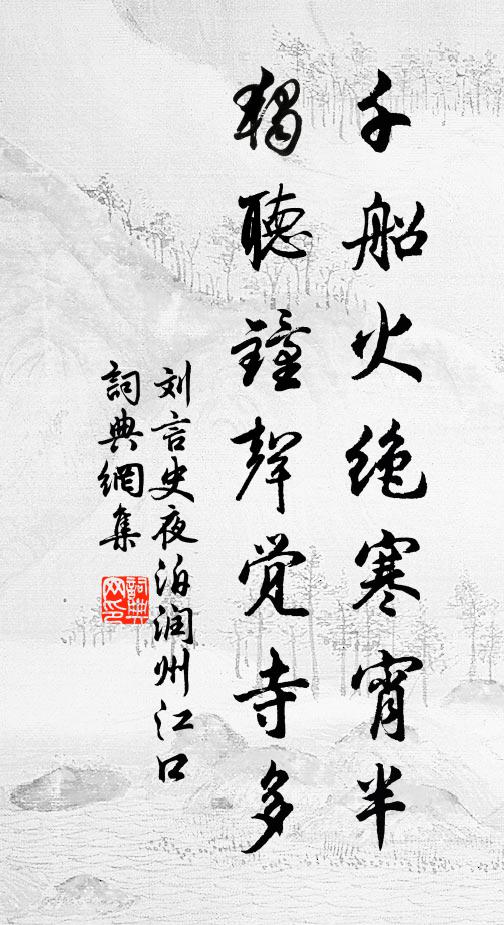 千船火绝寒宵半
獨聽鐘聲觉寺多
刘言史夜泊润州江口
詞典網集